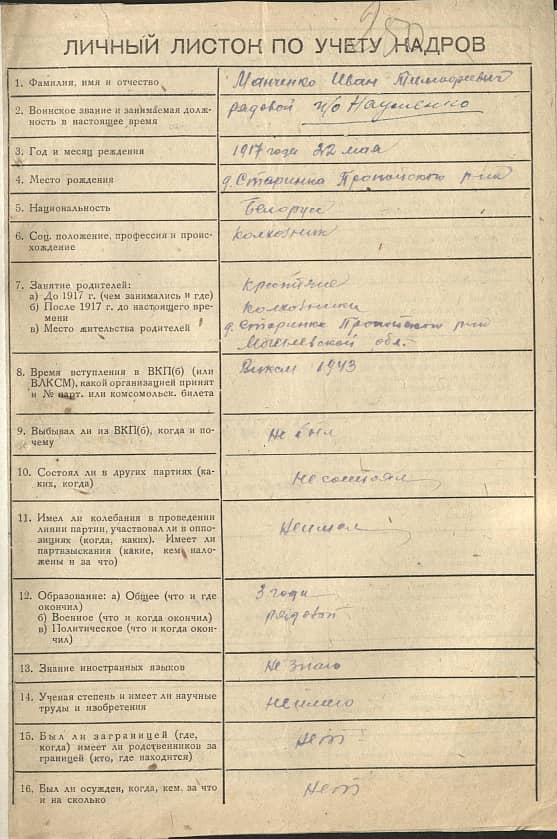 ЛИЧНЫЙ ЛИСТОК ПО УЧЕТУ КАДРОВ
1. Фамилия, имя и отчество
Манченко Иван Тимофеевич
2. Воинское звание и занимаемая долж-
ность в настоящее время
рядовой п/о Науменко
3. Год и месяц рождения
1917 года 22 мая
4. Место рождения
д. Старинка Пропойского р-на
5. Национальность
Белорус
6. Соц. положение, профессия и проис-
хождение
колхозник
7. Занятие родителей:
а) До 1917 г. (чем занимались и где)
б) После 1917 г. до настоящего вре-
мени
в) Место жительства родителей
Крестяне
Колхозники
д. Старинка Пропойского р-на
Могилевской обл.
8. Время вступления в ВКП(б) (или
ВЛКСМ), какой организацией принят
и № парт. или комсомольск. билета
Влксм 1943
9. Выбывал ли из ВКП(б), когда и по-
чему
Не был
10. Состоял ли в других партиях (ка-
ких, когда)
Не состоял
11. Имел ли колебания в проведении
линии партии, участвовал ли в оппо-
зициях (когда, каких). Имеет ли
партвзыскания (какие, кем нало-
жены и за что)
Неимел
12. Образование: а) Общее (что и где
окончил)
б) Военное (что и когда окончил)
в) Политическое (что и когда окон-
чил)
3 года
рядовой
13. Знание иностранных языков
Не знаю
14. Ученая степень и имеет ли научные
труды и изобретения
неимею
15. Был ли заграницей (где,
когда) имеет ли родственников за
границей (кто, где находится)
Нет
16. Был ли осужден, когда, кем, за что
и на сколько
Нет